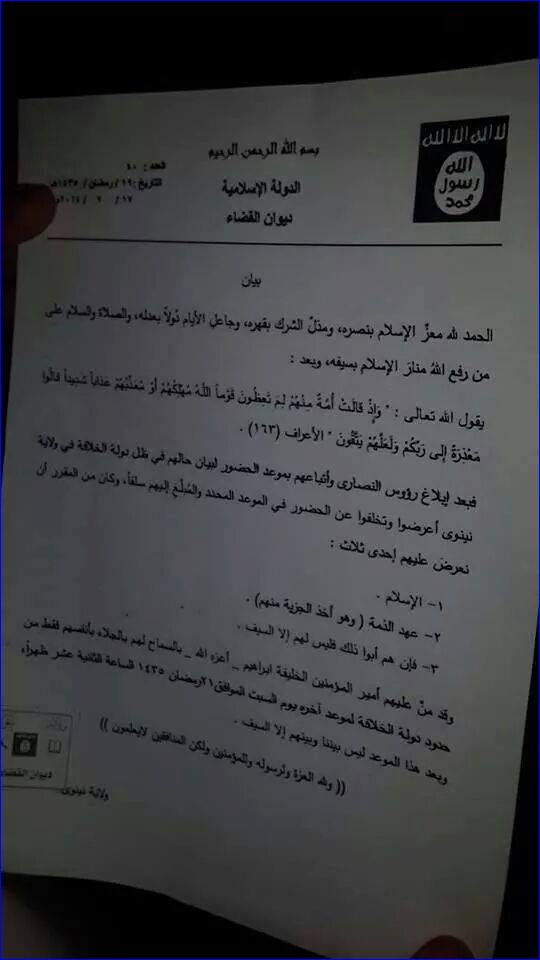 لا اله الا الله
الله
رسول
محمد
بسم الله الرحمن الرحيم
الدولة الإسلامية
ديوان القضاء
العدد : ٤٠
التاريخ : ١٩/ رمضان/ ١٤٣٥هـ
١٧ / ٧ / ٢٠١٤م
بيان
الحمد لله معزِّ الإسلام بنصره، ومذلِّ الشرك بقهره، وجاعلِ الأيام دُولاً بعدله، والصلاة والسلام على
من رفع اللهُ منارَ الإسلام بسيفه، وبعد :
يقول الله تعالى : " وَإِذْ قَالَتْ أُمَّةٌ مِنْهُمْ لِمَ تَعِظُونَ قَوْماً اللَّهُ مُهْلِكُهُمْ أَوْ مُعَذِّبُهُمْ عَذَاباً شَدِيداً قَالُوا
مَعْذِرَةً إِلَى رَبِّكُمْ وَلَعَلَّهُمْ يَتَّقُونَ " الأعراف (١٦٣) .
فبعد إبلاغ رؤوس النصارى وأتباعهم بموعد الحضور لبيان حالهم في ظل دولة الخلافة في ولاية
نينوى أعرضوا وتخلفوا عن الحضور في الموعد المحدد والمُبلَّغ إليهم سلفاً، وكان من المقرر أن
نعرضَ عليهم إحدى ثلاث :
١- الإسلام .
٢- عهد الذمة ( وهو أخذ الجزية منهم) .
٣- فإن هم أبوا ذلك فليس لهم إلا السيف .
وقد منّ عليهم أمير المؤمنين الخليفة ابراهيم _ أعزه الله _ بالسماح لهم بالجلاء بأنفسهم فقط من
حدود دولة الخلافة لموعد آخره يوم السبت الموافق٢١رمضان ١٤٣٥ الساعة الثانية عشر ظهراً،
وبعد هذا الموعد ليس بيننا وبينهم إلا السيف .
(( ولله العزة ولرسوله وللمؤمنين ولكن المنافقين لايعلمون ))
ديوان القضاء
ولاية نينوى